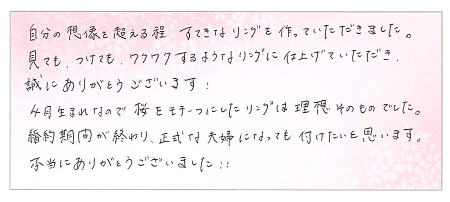 自分の想像を超える程、すてきなリングを作っていただきました。
見ても、つけても、ワクワクするようなリングに仕上げていただき、
誠にありがとうございます！
4月生まれなので桜をモチーフにしたリングは理想そのものでした。
婚約期間が終わり、正式な夫婦になっても付けたいと思います。
本当にありがとうございました!!